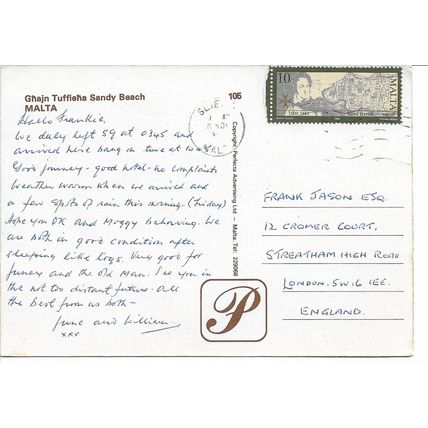 Għajn Tuffieħa Sandy Beach
MALTA
105
Hello Frankie,
We duly left 59 at 0345 and
arrived here bang on time at
Good journey - good hotel - no complaints
Weather warm when we arrived and
a few spots of rain this morning. (Friday)
Hope you OK and Moggy behaving. We
are both in good condition after
sleeping like logs. Very good for
Juney and the Old Man. See you in
the not too distant future. All
the best from us both -
June and William
xxx
Copyright: Perfecta Advertising Ltd — Malta. Tel: 229068
P
SLIE
MALTA
10c
FRANK JASON ESQ.
12 CROMER COURT.
STREATHAM HIGH ROAD
LONDON. SW16 1EE.
ENGLAND.